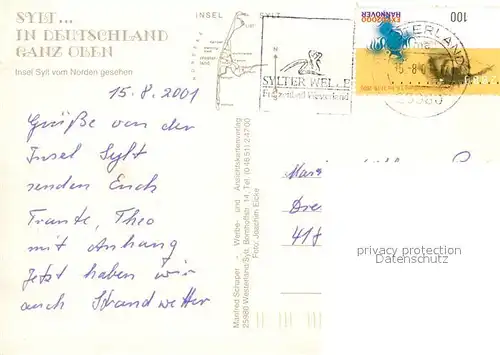 SYLT...
IN DEUTSCHLAND
GANZ OBEN
Insel Sylt vom Norden gesehen
15.8.2001
Grüße von der
Insel Sylt
senden Euch
Traute, Theo
mit Anhang
Jetzt haben wir
auch Strandwetter
INSEL SYLT
N
SYLTER WELLE
Freizeitbad Westerland
EXPO2000
HANNOVER
100
Manfred Schaper - Werbe- und Ansichtskartenverlag
25980 Westerland/Sylt, Bomhoffstr. 14, Tel. (0 46 51) 2 47 00
Foto: Joachim Eicke
privacy protection
Datenschutz